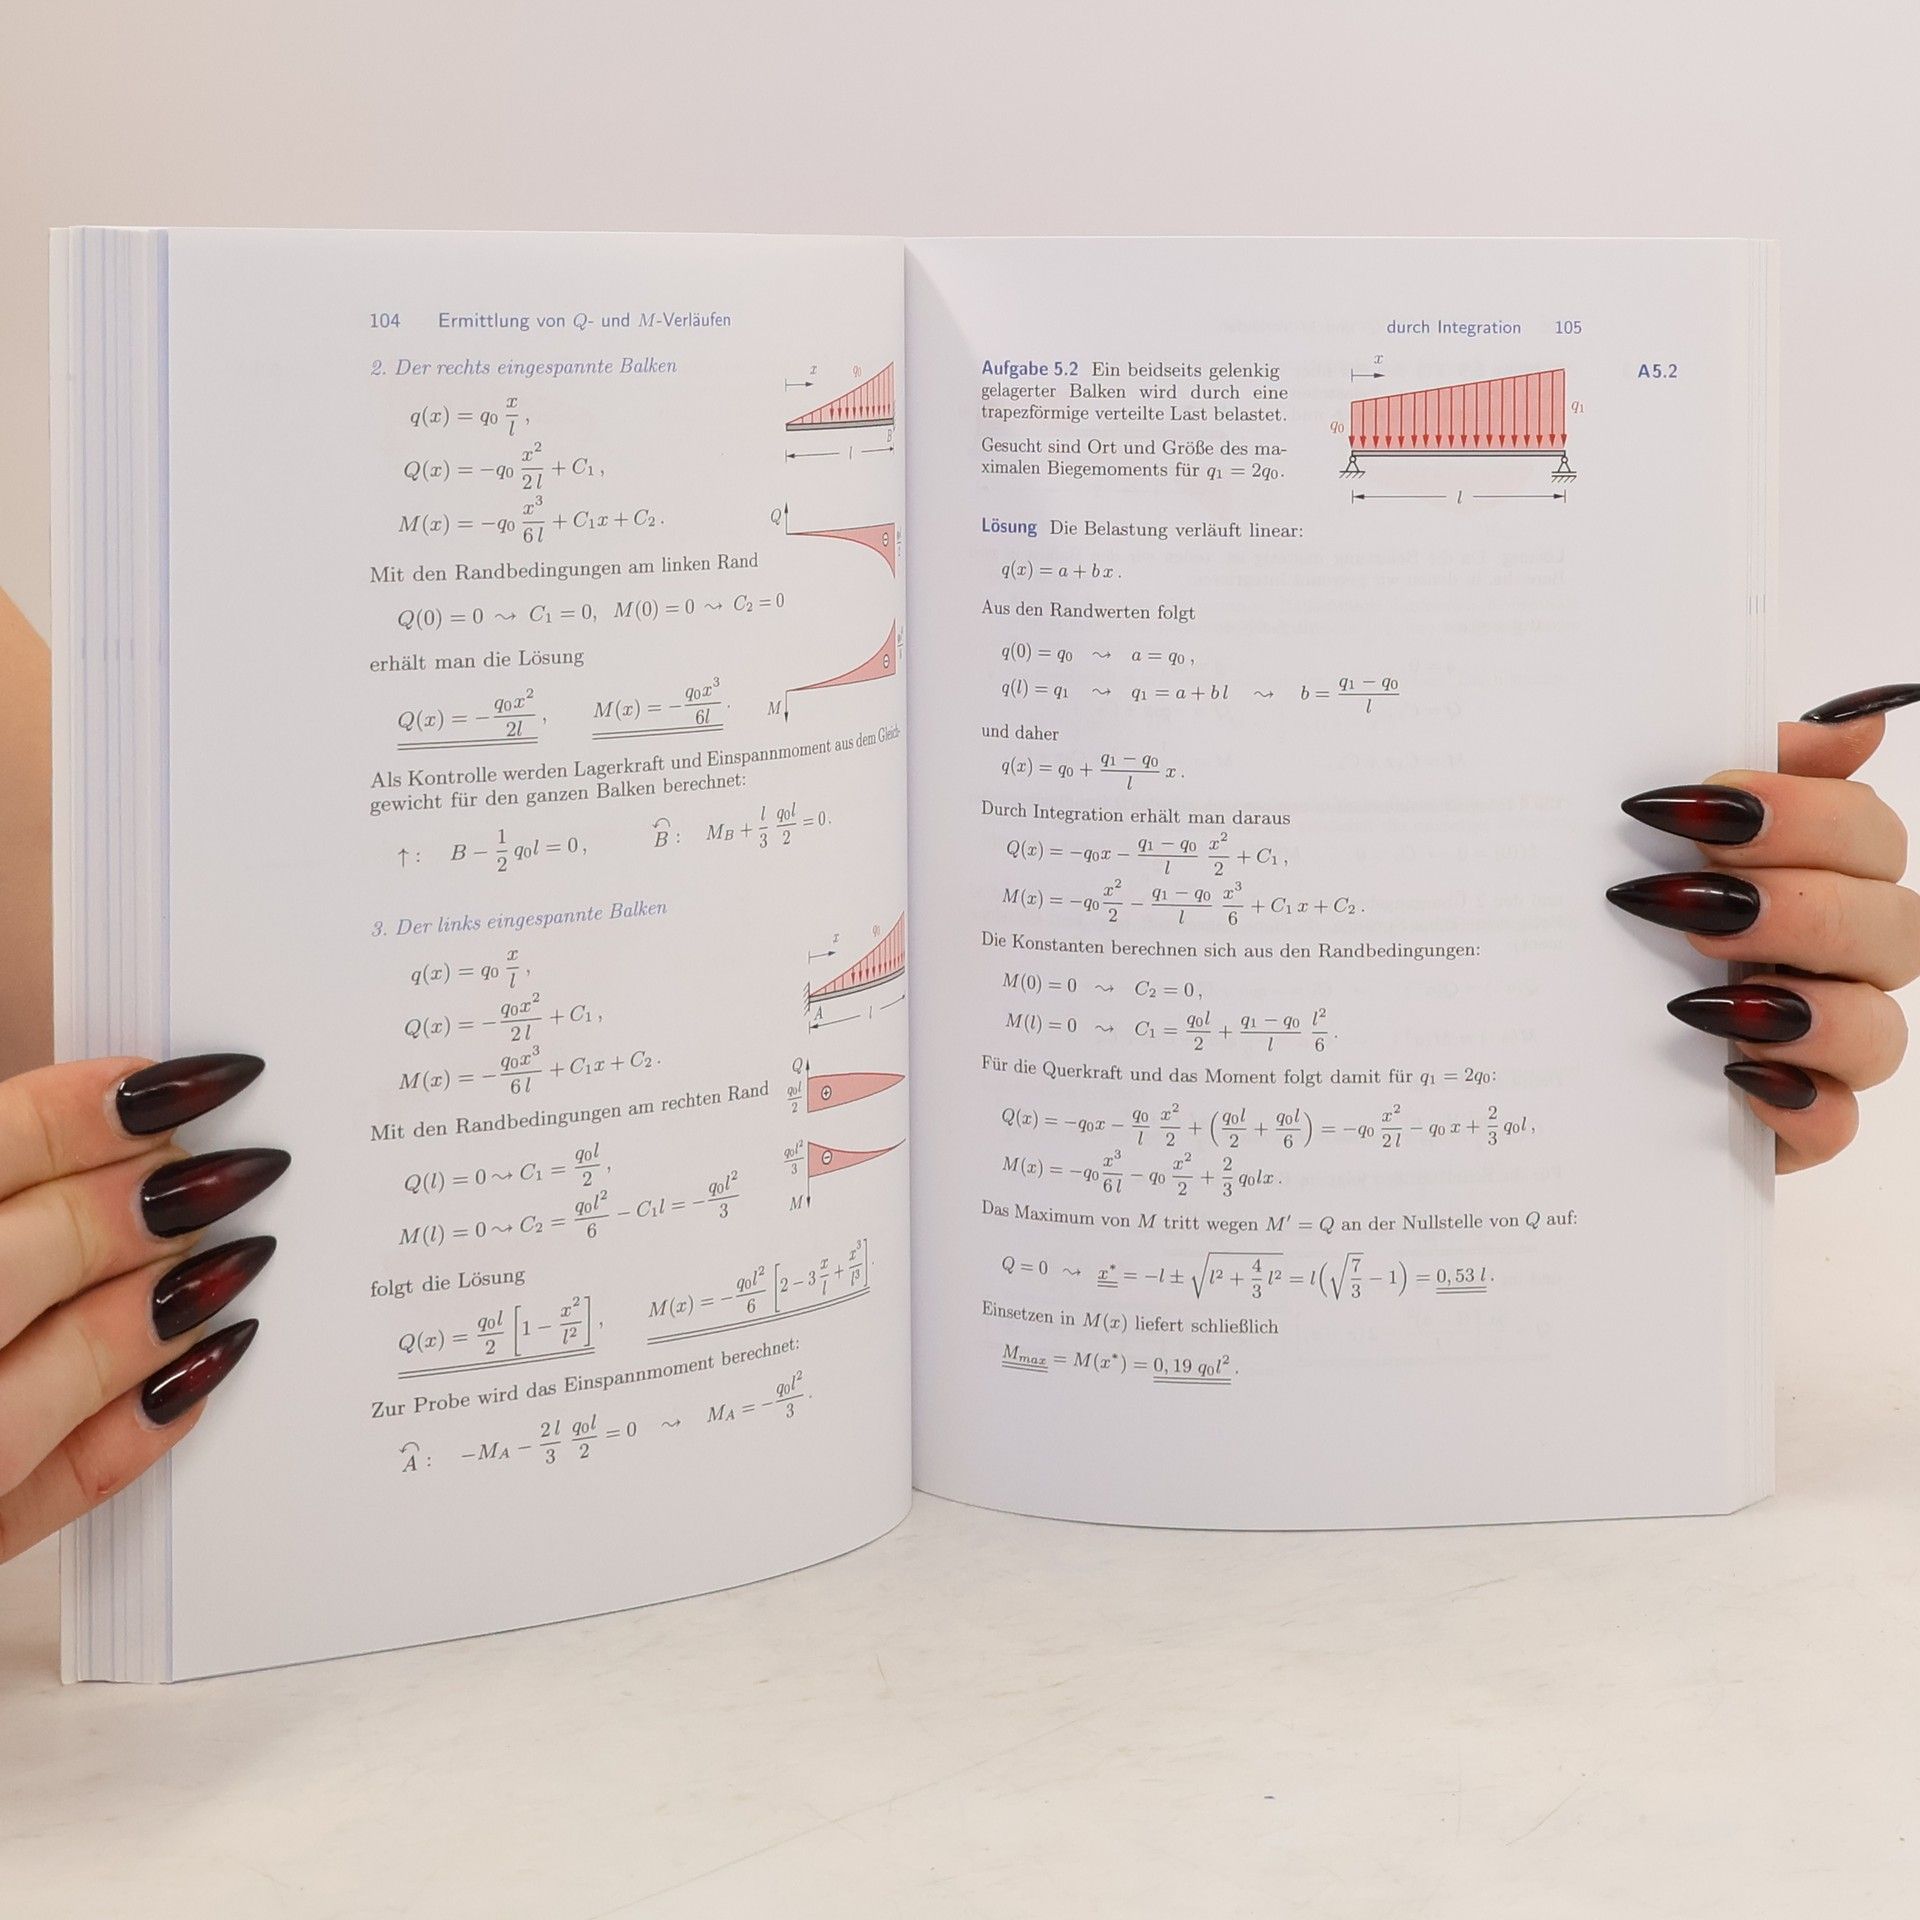 104 Ermittlung von Q- und M-Verläufen
2. Der rechts eingespannte Balken
x q₀
q(x) = q₀ x/l ,
B
Q(x) = −q₀ x²/2l + C₁ ,
l
M(x) = −q₀ x³/6l + C₁x + C₂ .
Q
⊖
Mit den Randbedingungen am linken Rand
Q(0) = 0 ⇝ C₁ = 0, M(0) = 0 ⇝ C₂ = 0
erhält man die Lösung
⊖
Q(x) = −q₀x²/2l , M(x) = −q₀x³/6l .
M
Als Kontrolle werden Lagerkraft und Einspannmoment aus dem Gleich-
gewicht für den ganzen Balken berechnet:
↑ : B − 1/2 q₀l = 0 , B : M_B + l/3 q₀l/2 = 0.
3. Der links eingespannte Balken
x q₀
q(x) = q₀ x/l ,
A l
Q(x) = −q₀x²/2l + C₁ ,
M(x) = −q₀x³/6l + C₁x + C₂ .
Q
q₀l/2 ⊕
Mit den Randbedingungen am rechten Rand
q₀l²/3 ⊖
M
Q(l) = 0 ⇝ C₁ = q₀l/2 ,
M(l) = 0 ⇝ C₂ = q₀l²/6 − C₁l = −q₀l²/3
folgt die Lösung
Q(x) = q₀l/2 [1 − x²/l²] , M(x) = −q₀l²/6 [2 − 3 x/l + x³/l³] .
Zur Probe wird das Einspannmoment berechnet:
A : −M_A − 2l/3 q₀l/2 = 0 ⇝ M_A = −q₀l²/3 .
durch Integration 105
Aufgabe 5.2 Ein beidseits gelenkig
gelagerter Balken wird durch eine
trapezförmige verteilte Last belastet.
Gesucht sind Ort und Größe des ma-
ximalen Biegemoments für q₁ = 2q₀.
x
q₀
q₁
l
A5.2
Lösung Die Belastung verläuft linear:
q(x) = a + bx .
Aus den Randwerten folgt
q(0) = q₀ ⇝ a = q₀ ,
q(l) = q₁ ⇝ q₁ = a + bl ⇝ b = (q₁ − q₀)/l
und daher
q(x) = q₀ + (q₁ − q₀)/l x .
Durch Integration erhält man daraus
Q(x) = −q₀x − (q₁ − q₀)/l x²/2 + C₁ ,
M(x) = −q₀ x²/2 − (q₁ − q₀)/l x³/6 + C₁ x + C₂ .
Die Konstanten berechnen sich aus den Randbedingungen:
M(0) = 0 ⇝ C₂ = 0 ,
M(l) = 0 ⇝ C₁ = q₀l/2 + (q₁ − q₀)/l l²/6 .
Für die Querkraft und das Moment folgt damit für q₁ = 2q₀:
Q(x) = −q₀x − q₀/l x²/2 + (q₀l/2 + q₀l/6) = −q₀ x²/2l − q₀ x + 2/3 q₀l ,
M(x) = −q₀ x³/6l − q₀ x²/2 + 2/3 q₀lx .
Das Maximum von M tritt wegen M′ = Q an der Nullstelle von Q auf:
Q = 0 ⇝ x* = −l ± √(l² + 4/3 l²) = l(√(7/3) − 1) = 0,53 l .
Einsetzen in M(x) liefert schließlich
M_max = M(x*) = 0,19 q₀l² .